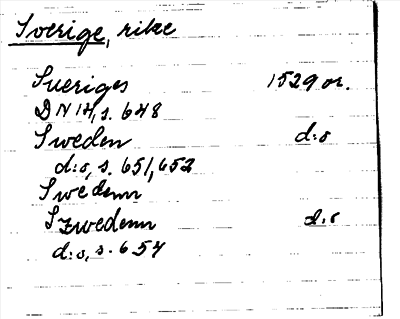 Sverige, rike
Sveriges 1529 or.
DN 14, s. 648
Sweden d:o
d:o, s. 651, 652
Swedenn
Szwedenn d:o
d:o, s. 654